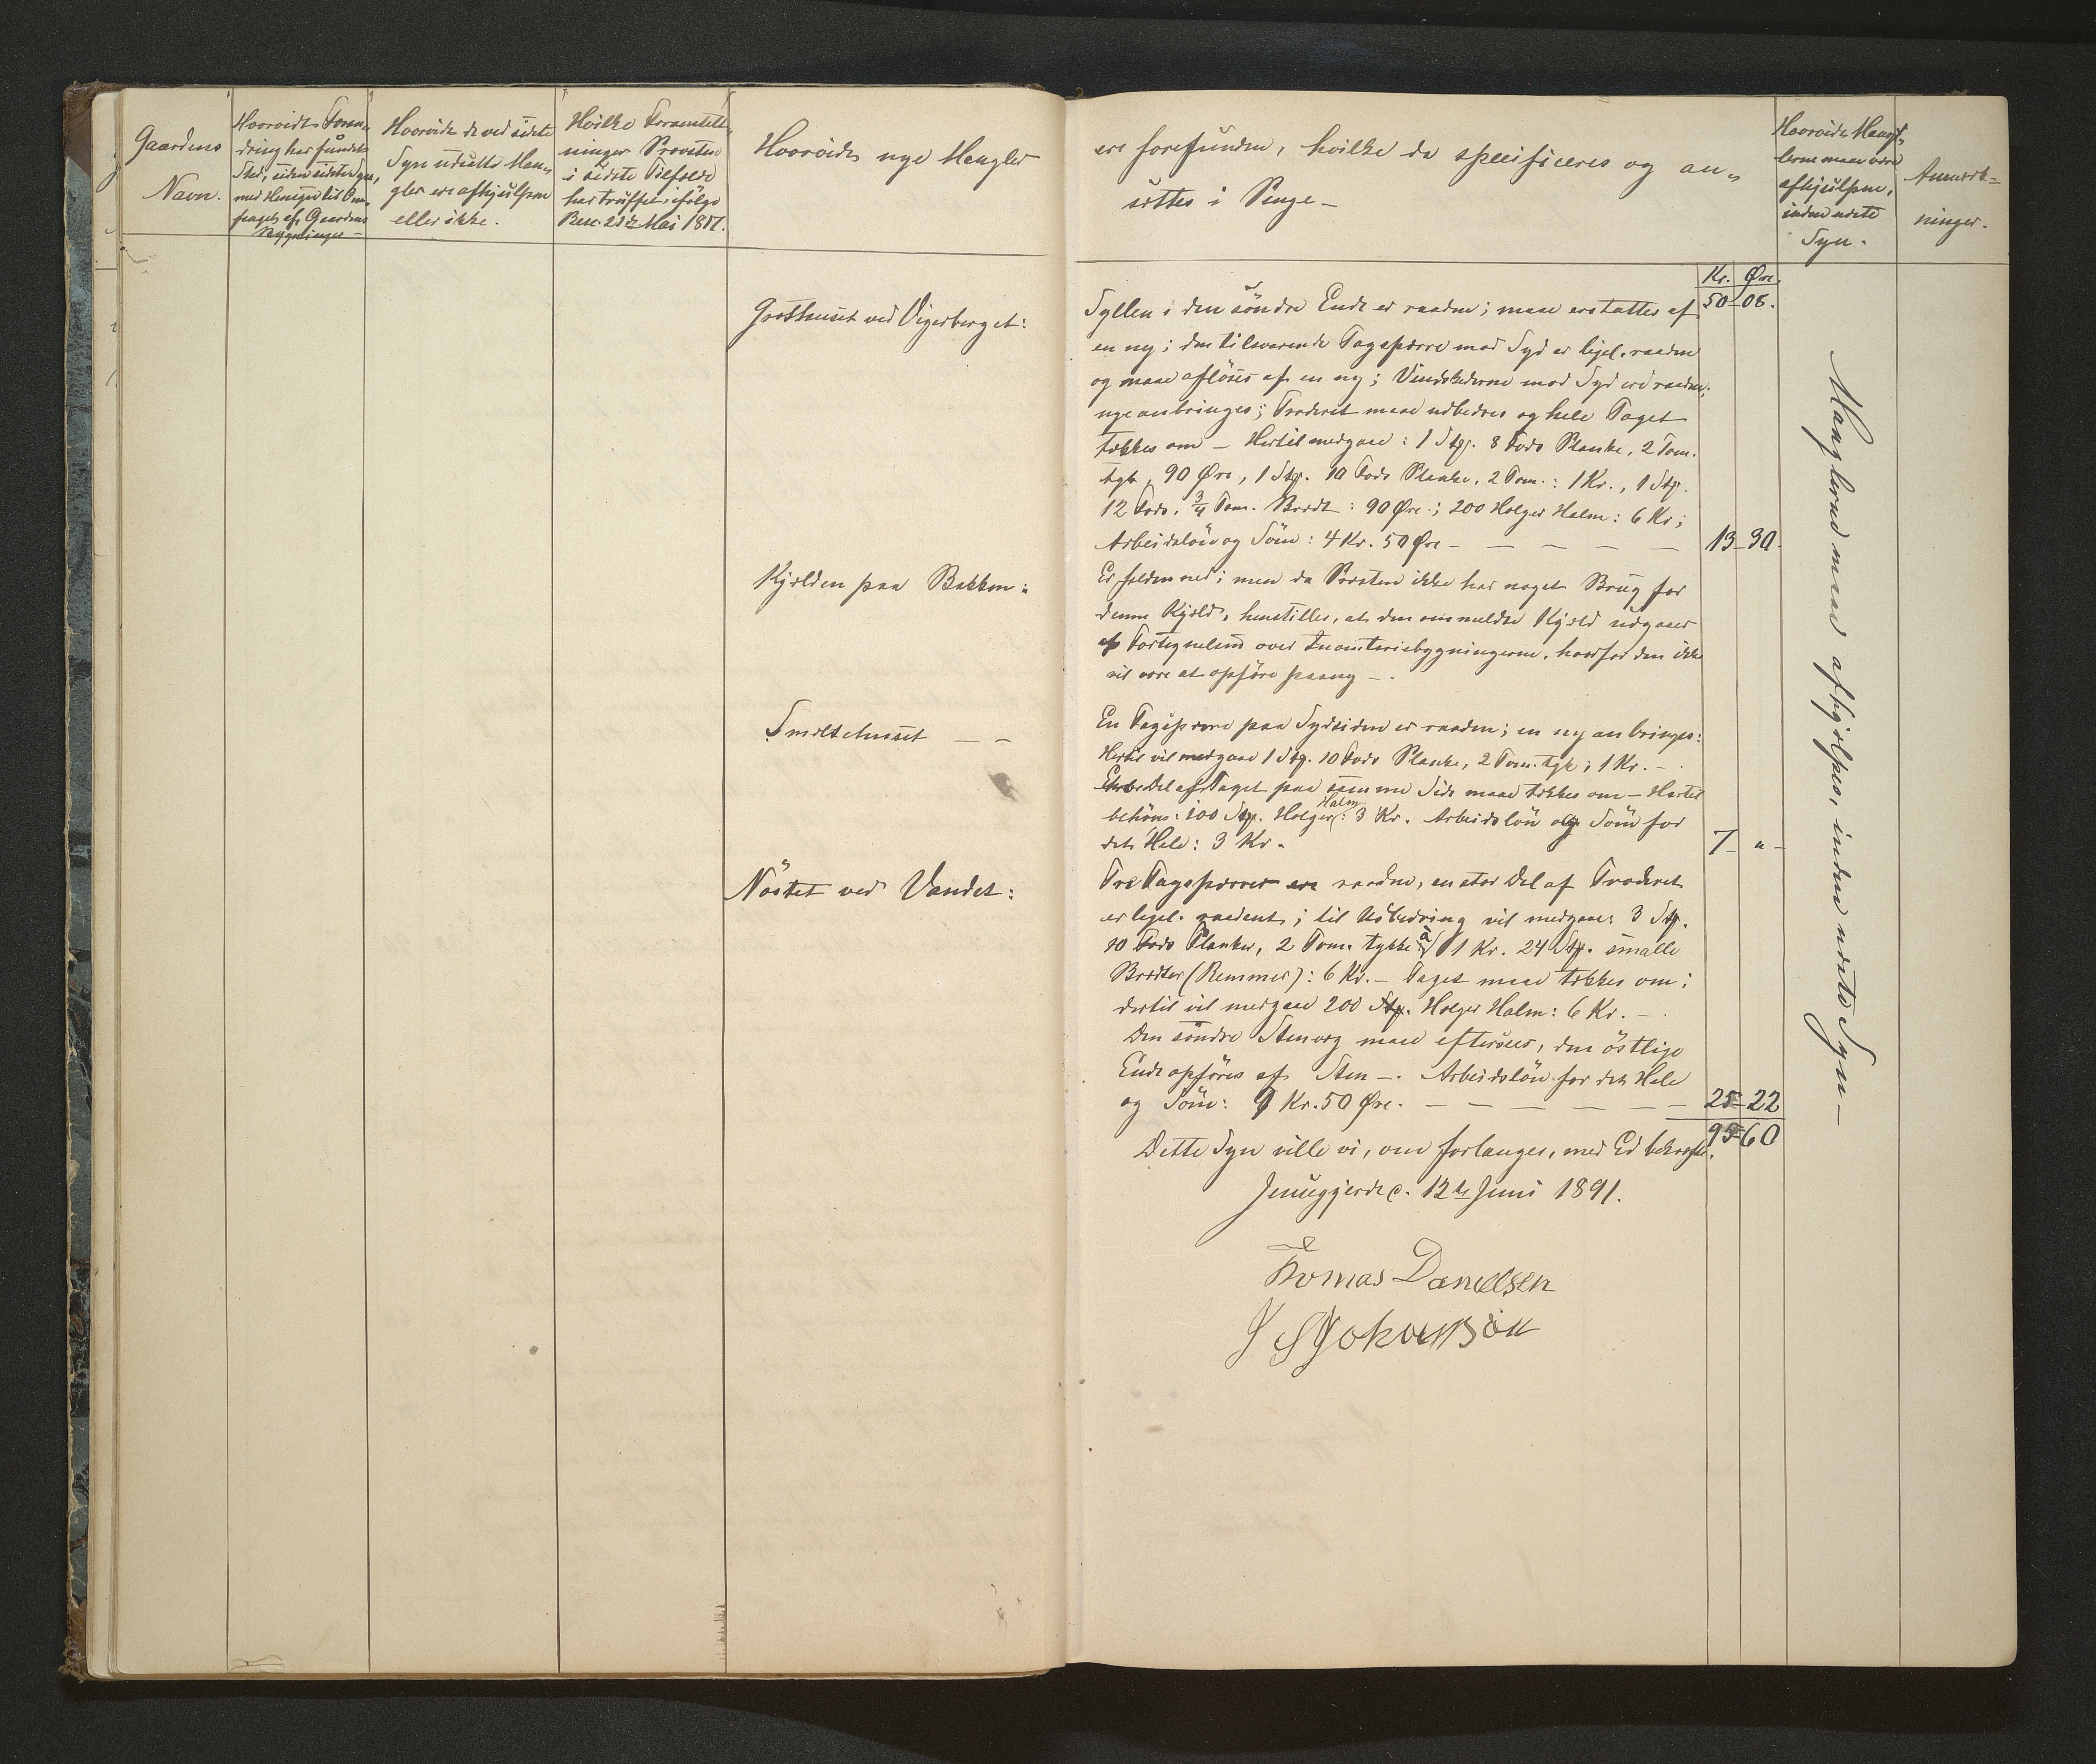 Gaardens
Navn.
Hvorvidt Foran-
dring har fundet
Sted, siden sidste Syn,
med Hensyn til Om-
fanget af Gaardens
Bygninger -
Hvorvidt de ved sidste
Syn udsatte Man-
gler ere afhjulpne
eller ikke.
Hvilke Foranstalt-
ninger Provsten
i sidste Tilfælde
har truffet ifølge
Resc. 21de Mai 1817.
Hvorvidt nye Mangler
Græshuset ved Vigerberget:
Kjælden paa Bakken:
Smeltehuset — —
Nöstet ved Vandet:
ere forefunden, hvilke da specificeres og an-
sættes i Penge -
Hvorvidt Mang-
lerne maa være
afhjulpne,
inden næste
Syn.
Anmærk-
ninger.
Kr. Øre.
50 - 08.
Syllen i den söndre Ende er raaden; maa erstattes af
en ny; den tilsvarende Tagsperre mod Syd er ligel. raaden
og maa aflöses af en ny; Vindskederne mod Syd ere raadne;
nye anbringes; Troderet maa udbedres og hele Taget
tækkes om - Hertil medgaae: 1 Stk. 8 Fods Planke, 2 Tom.
tyk, 90 Øre, 1 Stk. 10 Fods Planke, 2 Tom.: 1 Kr., 1 Stk.
12 Fods, 3/4 Tom. Bordt: 90 Øre; 200 Holger Halm: 6 Kr;
Arbeidslön og Söm: 4 Kr. 50 Øre - — — — — 13 - 30.
Er falden ned; men da Præsten ikke har noget Brug for
denne Kjæld, henstilles, at den ommeldte Kjæld udgaaer
af Fortegnelsen over Inventariebygningerne, hvorfor den ikke
vil være at opföre paany -.
En Tagsperre paa Sydsiden er raaden; en ny anbringes:
Hertil vil medgaae 1 Stk. 10 Fods Planke, 2 Tom. tyk; 1 Kr. -
Del af Taget paa samme Side maa tækkes om - Hertil
behöves: 100 Stk. Holger Halm: 3 Kr. Arbeidslön og Söm for
det Hele: 3 Kr. 7 - " -
Tre Tagsperrer ere raadne, en stor Del af Troderet
er ligel. raadent; til Udbedring vil medgaae: 3 Stk.
10 Fods Planker, 2 Tom. tykke à 1 Kr. 24 Stk. smalle
Bordter (Remmer): 6 Kr. - Taget maa tækkes om;
dertil vil medgaae 200 Stk. Holger Halm: 6 Kr. -
Den söndre Stenvæg maa eftersees, den östlige
Ende opföres af Sten -. Arbeidslön for det Hele
og Söm: 9 Kr. 50 Øre. — — — — — — 25 - 22
95 - 60
Dette Syn ville vi, om forlanges, med Ed bekræfte.
12te Juni 1891.
Tomas Danielsen
Manglerne maa afhjælpes, inden næste Syn -